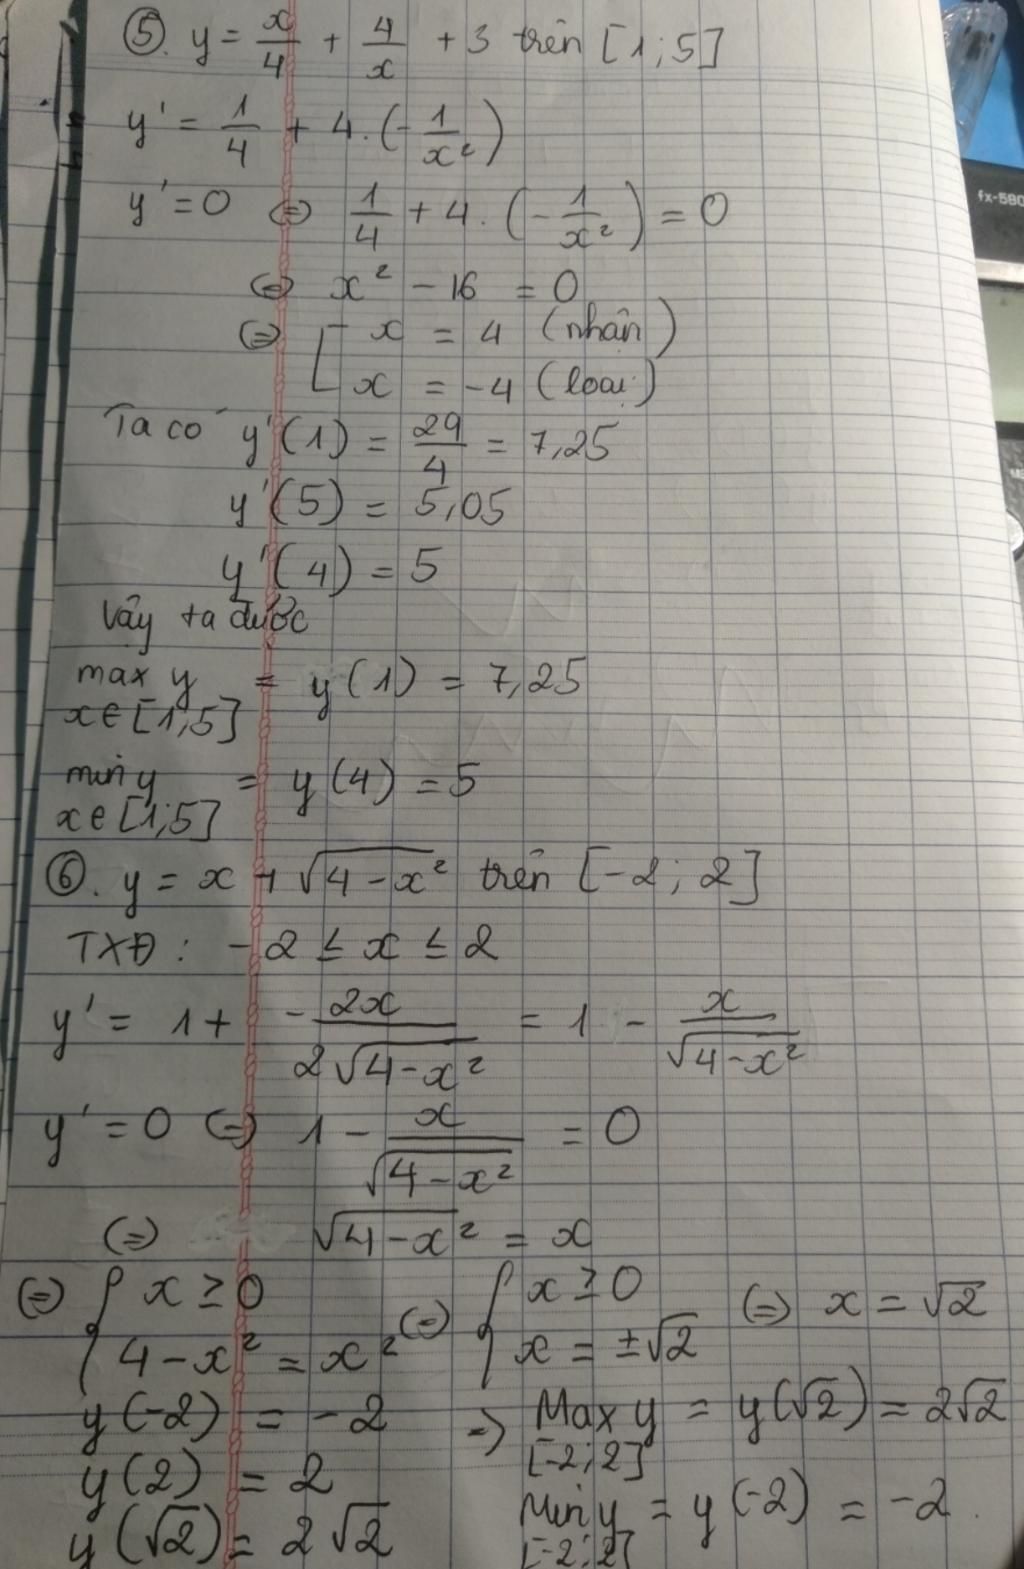 ⑤. y = x/4 + 4/x + 3 trên [1;5]
fx-580
y' = 1/4 + 4.(-1/x²)
y' = 0 (=) 1/4 + 4.(-1/x²) = 0
(=) x² - 16 = 0
(=) [ x = 4 (nhận)
x = -4 (loại)
Ta có y'(1) = 29/4 = 7,25
y'(5) = 5,05
y'(4) = 5
Vậy ta được
max y = y(1) = 7,25
x∈[1;5]
min y = y(4) = 5
x∈[1;5]
⑥. y = x + √(4-x²) trên [-2; 2]
TXĐ: -2 ≤ x ≤ 2
y' = 1 + -2x/(2√(4-x²)) = 1 - x/√(4-x²)
y' = 0 (=) 1 - x/√(4-x²) = 0
(=) √(4-x²) = x
(=) { x ≥ 0 (=) { x ≥ 0 (=) x = √2
4-x² = x² x = ±√2
y(-2) = -2 => Max y = y(√2) = 2√2
[-2;2]
y(2) = 2
Min y = y(-2) = -2
y(√2) = 2√2
[-2;2]